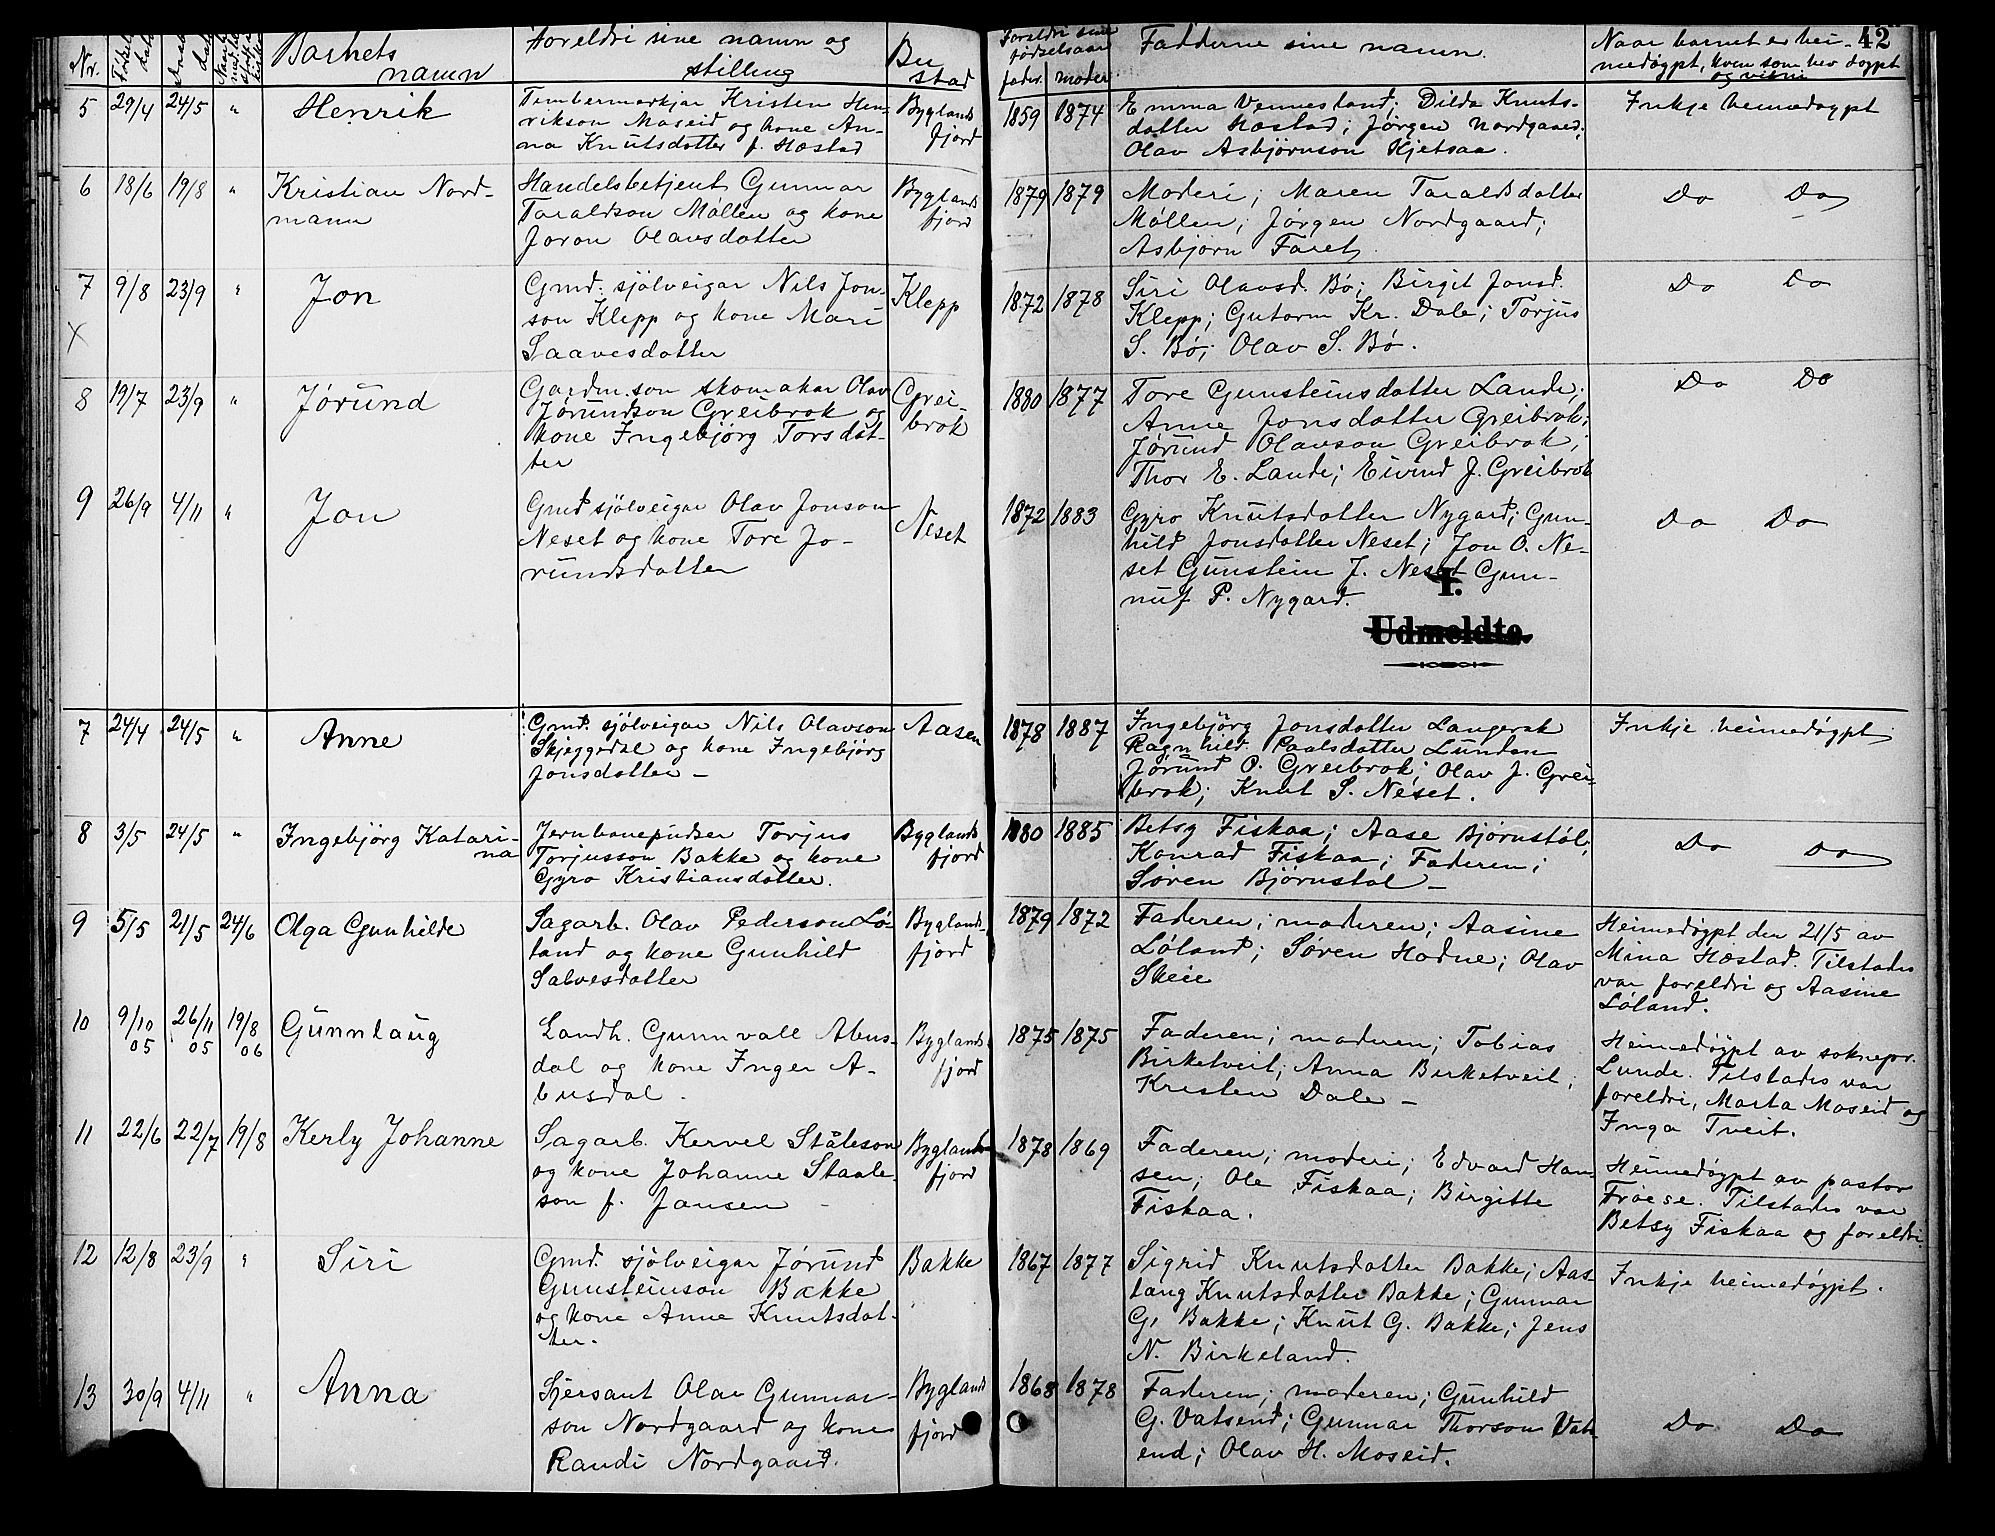 42
Nr.
Barnets
namn
Foreldri sine namn og
stilling
Bu
stad
Foreldri sine
fødselsaar
fader. moder
Fadderne sine namn.
Naar barnet er hei-
medøypt, kven som hev døypt
og vitni
5 29/4 24/5 "
Henrik
Timbermerkjar Kristen Hen-
rikson Moseid og kone An-
na Knutsdotter f. Hæstad
Byglands
fjord
1859 1874
Emma Vennesland; Dilda Knuts-
dotter Hæstad; Jørgen Nordgaard;
Olav Asbjørnson Kjetsaa.
Inkje heimedøypt
6 18/6 19/8 "
Kristian Nord-
mann
Handelsbetjent Gunnar
Taraldson Møllen og kone
Joron Olavsdotter
Byglands
fjord
1879 1879
Moderi; Maren Taraldsdotter
Møllen; Jørgen Nordgaard;
Asbjørn Faret
Do Do
7 9/8 23/9 "
X
Jon
Gmd. sjølveigar Nils Jon-
son Klepp og kone Mari
Saavesdotter
Klepp
1872 1878
Siri Olavsd. Bø; Birgit Jonsd.
Klepp; Gutorm Kr. Dale; Torjus
S. Bø; Olav S. Bø.
Do Do
8 19/7 23/9 "
Jørund
Gardm.son skomakar Olav
Jørundson Greibrok og
kone Ingebjørg Torsdot-
ter
Grei-
brok
1880 1877
Tore Gunsteinsdotter Lande;
Anne Jonsdotter Greibrok;
Jørund Olavson Greibrok;
Thor E. Lande; Eivind J. Greibrok
Do Do
9 26/9 4/11 "
Jon
Gmd sjølveigar Olav Jonson
Neset og kone Tore Jo-
rundsdotter
Neset
1872 1883
Gyro Knutsdotter Nygard; Gun-
hild Jonsdotter Neset; Jon O. Ne-
set Gunstein J. Neset Gun-
nuf P. Nygard.
Do Do
I.
Udmeldte.
7 24/4 24/5 "
Anne
Gmd. sjølveigar Nils Olavson
Skjeggedal og kone Ingebjørg
Jonsdotter -
Aasen
1878 1887
Ingebjørg Jonsdotter Langerak
Ragnhild Paalsdotter Lunden
Jørund O. Greibrok; Olav J. Grei-
brok; Knut S. Neset.
Inkje heimedøypt
8 3/5 24/5 "
Ingebjørg Katari-
na
Jernbanepudser Torjus
Torjusson Bakke og kone
Gyro Kristiansdotter.
Byglands
fjord
1880 1885
Betsy Fiskaa; Aase Bjørnstøl;
Konrad Fiskaa; Faderen;
Søren Bjørnstøl -
Do Do
9 5/5 21/5 24/6
Olga Gunhilde
Sagarb. Olav Pederson Lø-
land og kone Gunhild
Salvesdotter
Byglands-
fjord
1879 1872
Faderen; moderen; Aasine
Løland; Søren Hodne; Olav
Skeie
Heimedøypt den 21/5 av
Mina Hæstad. Tilstades
var foreldri og Aasine
Løland.
10 9/10 05 26/11 05 19/8 06
Gunnlaug
Landh. Gunnvall Abus-
dal og kone Inger A-
busdal.
Byglands
fjord
1875 1875
Faderen; moderen; Tobias
Birketveit; Anna Birketveit;
Kristen Dale -
Heimedøypt av soknepr.
Lunde. Tilstades var
foreldri, Marta Moseid og
Inga Tveit.
11 22/6 22/7 19/8
Kerly Johanne
Sagarb. Kervel Ståleson
og kone Johanne Staale-
son f. Jansen -
Byglands
fjord
1878 1869
Faderen; moderi; Edvard Han-
sen; Ole Fiskaa; Birgitte
Fiskaa.
Heimedøypt av pastor
Frøese. Tilstades var
Betsy Fiskaa og foreldri.
12 12/8 23/9 "
Siri
Gmd. sjølveigar Jørund
Gunsteinson Bakke
og kone Anne Knutsdot-
ter.
Bakke
1867 1877
Sigrid Knutsdotter Bakke; Aas-
laug Knutsdotter Bakke; Gunnar
G. Bakke; Knut G. Bakke; Jens
N. Birkeland.
Inkje heimedøypt.
13 30/9 4/11 "
Anna
Sjersant Olav Gunnar-
son Nordgaard og kone
Randi Nordgaard.
Byglands
fjord
1868 1878
Faderen; moderen; Gunhild
G. Vatsend; Gunnar Thorson Vats-
end; Olav H. Moseid.
Do Do